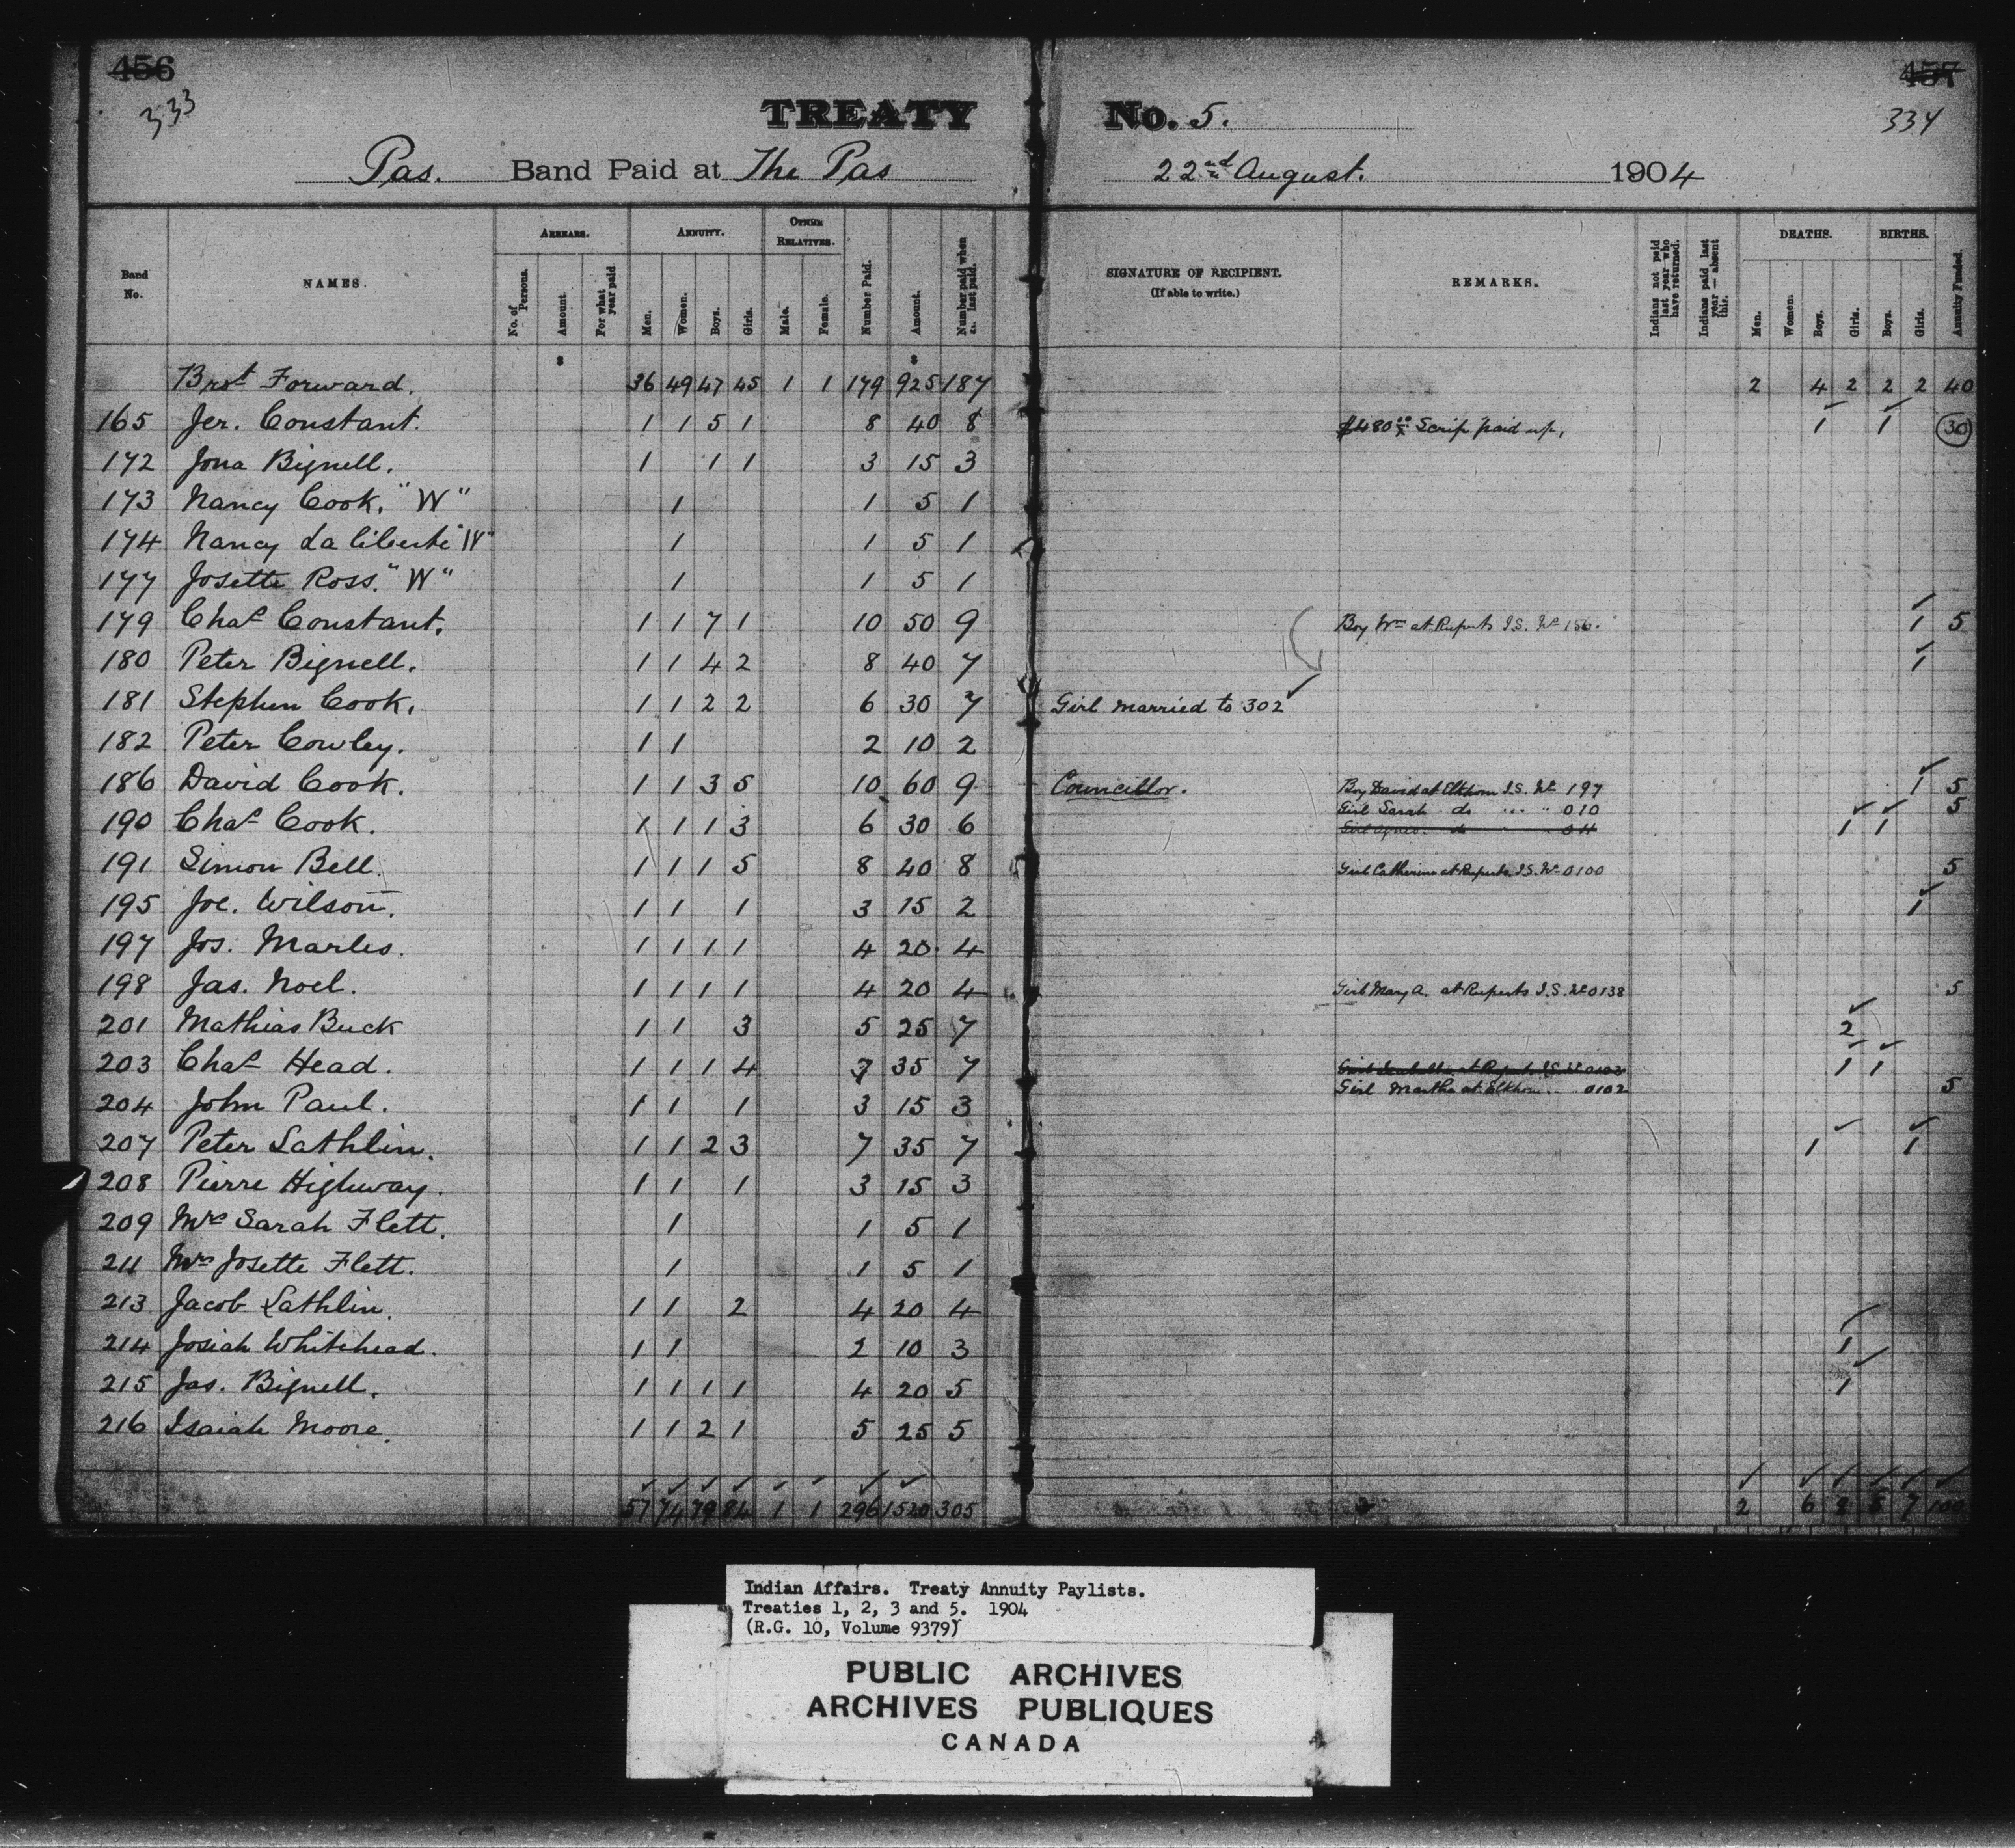 456
457
333
334
TREATY No. 5.
Pas. Band Paid at The Pas 22nd August. 1904
Band No.
NAMES.
ARREARS.
No. of Persons.
Amount
For what year paid
ANNUITY.
Men.
Women.
Boys.
Girls.
OTHER RELATIVES.
Male.
Female.
Number Paid.
Amount.
Number paid when last paid.
SIGNATURE OF RECIPIENT.
(If able to write.)
REMARKS.
Indians not paid last year who have returned.
Indians paid last year — absent this.
DEATHS.
Men.
Women.
Boys.
Girls.
BIRTHS.
Boys.
Girls.
Annuity Funded.
$ $
Brot Forward. 36 49 47 45 1 1 179 925 187 2 4 2 2 2 40
165 Jer. Constant. 1 1 5 1 8 40 8 $480 00/x Scrip paid up. 1 1 30
172 Jona Bignell. 1 1 1 3 15 3
173 Nancy Cook. "W" 1 1 5 1
174 Nancy La Liberte "W" 1 1 5 1
177 Josette Ross. "W" 1 1 5 1
179 Chas Constant. 1 1 7 1 10 50 9 Boy Wm at Ruperts I.S. No 156. 1 5
180 Peter Bignell. 1 1 4 2 8 40 7 1
181 Stephen Cook. 1 1 2 2 6 30 7 Girl married to 302
182 Peter Cowley. 1 1 2 10 2
186 David Cook. 1 1 3 5 10 60 9 Councillor. Boy David at Elkhorn I.S. No 197 1 5
Girl Sarah do " " 010 5
190 Chas Cook. 1 1 1 3 6 30 6 Girl Agnes. do 011 1 1
191 Simon Bell. 1 1 1 5 8 40 8 Girl Catherine at Ruperts I.S. No 0100 5
195 Joe. Wilson. 1 1 1 3 15 2 1
197 Jos. Marles. 1 1 1 1 4 20 4
198 Jas. Noel. 1 1 1 1 4 20 4 Girl Mary A. at Ruperts I.S. No 0138 5
201 Mathias Buck 1 1 3 5 25 7 2
203 Chas Head. 1 1 1 4 7 35 7 1 1
Girl Martha at Elkhorn " 0102 5
204 John Paul. 1 1 1 3 15 3
207 Peter Lathlin. 1 1 2 3 7 35 7 1 1
208 Pierre Highway. 1 1 1 3 15 3
209 Mrs Sarah Flett. 1 1 5 1
211 Mrs Josette Flett. 1 1 5 1
213 Jacob Lathlin. 1 1 2 4 20 4
214 Josiah Whitehead. 1 1 2 10 3 1
215 Jas. Bignell. 1 1 1 1 4 20 5 1
216 Isaiah Moore. 1 1 2 1 5 25 5
57 74 79 84 1 1 296 1520 305 2 6 8 5 7 100
Indian Affairs. Treaty Annuity Paylists.
Treaties 1, 2, 3 and 5. 1904
(R.G. 10, Volume 9379)
PUBLIC ARCHIVES
ARCHIVES PUBLIQUES
CANADA